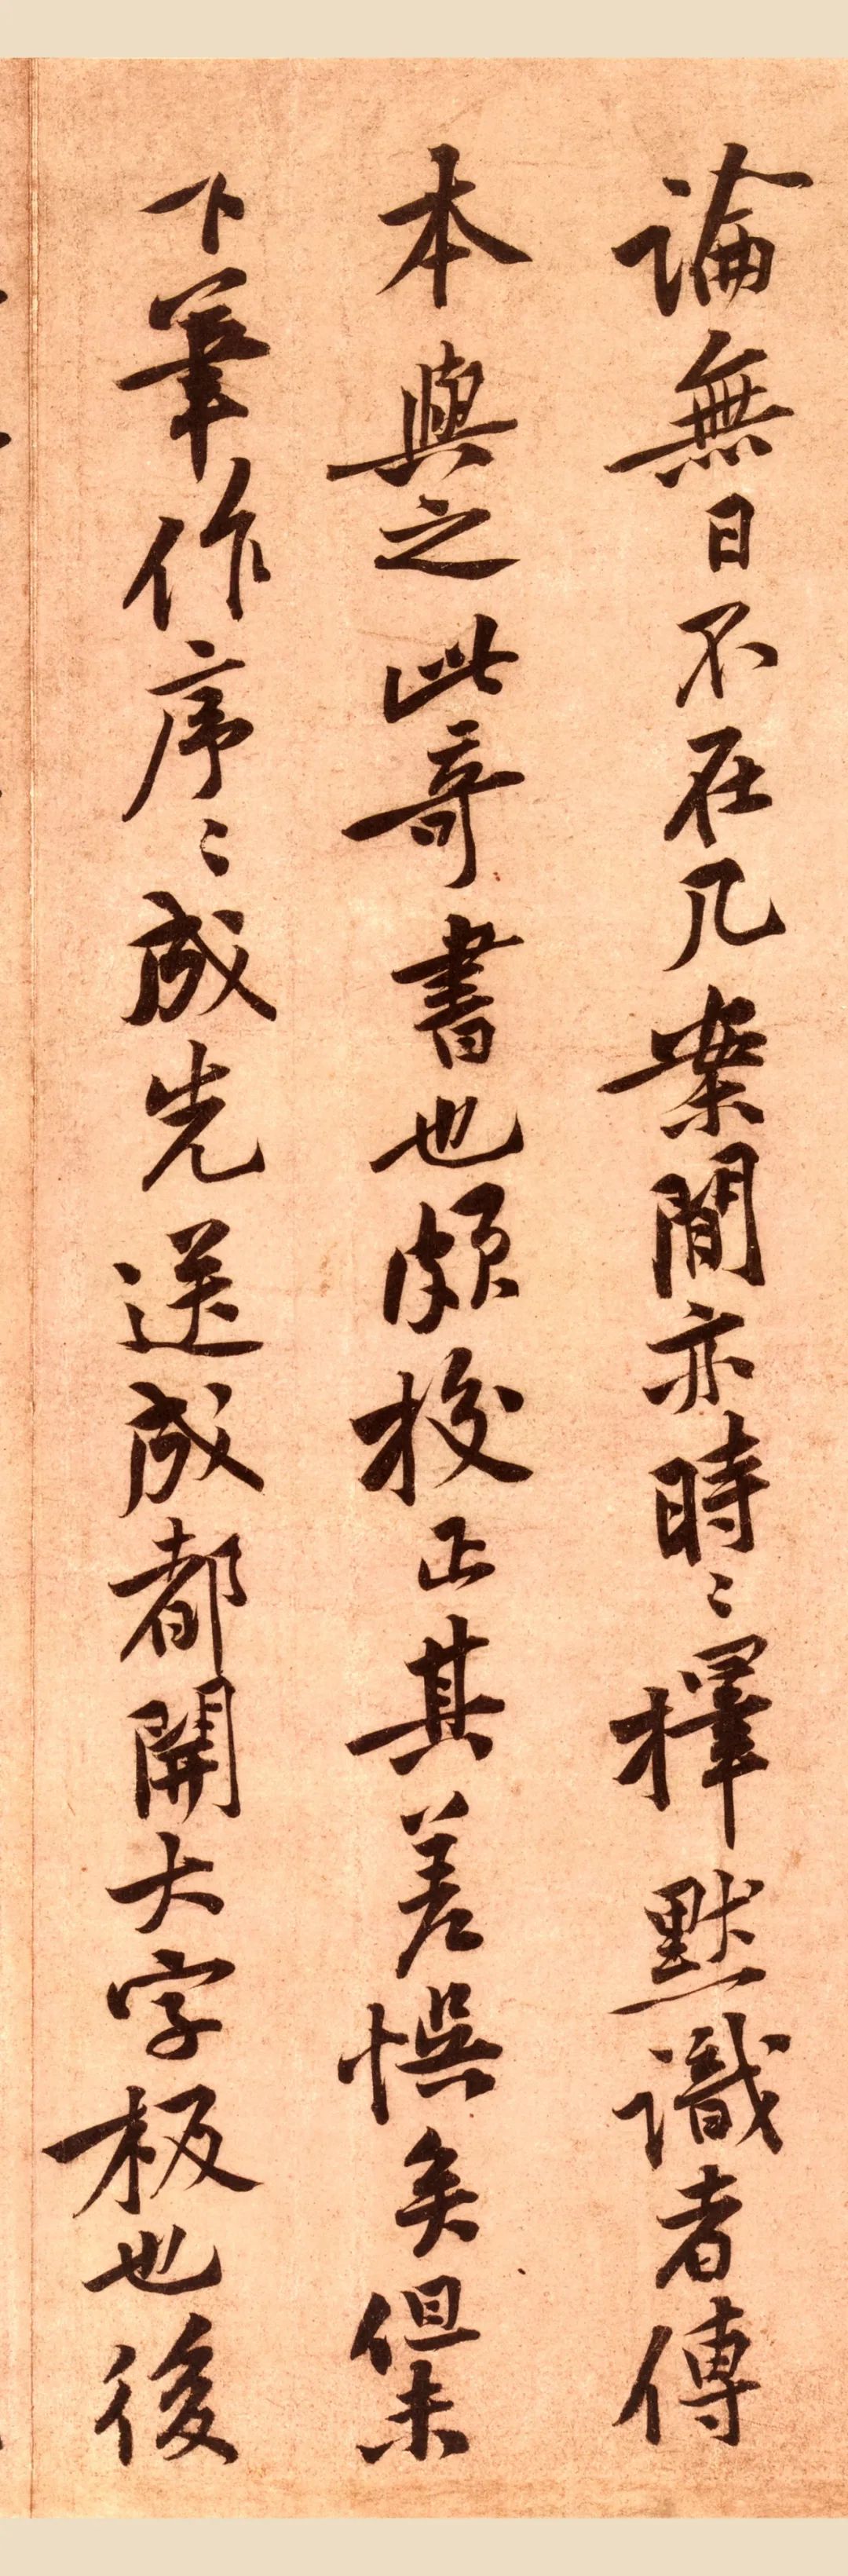 論無日不在几案間亦時〻擇默識者傳
本與之此奇書也頗校正其差悞矣但未
下筆作序〻成先送成都開大字板也後